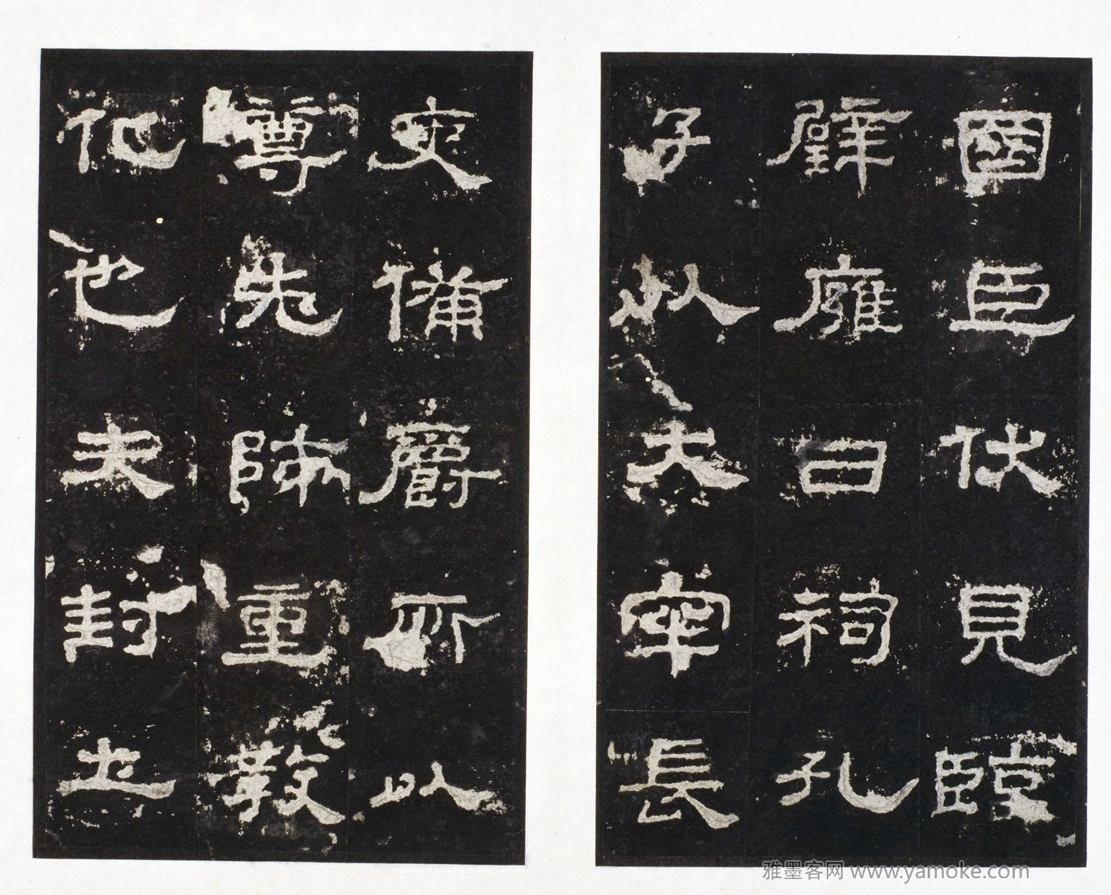 國臣伏見臨
璧雍日祠孔
子以大牢長
吏備爵所以
尊先師重教
化也夫封土
雅墨客网 www.yamoke.com